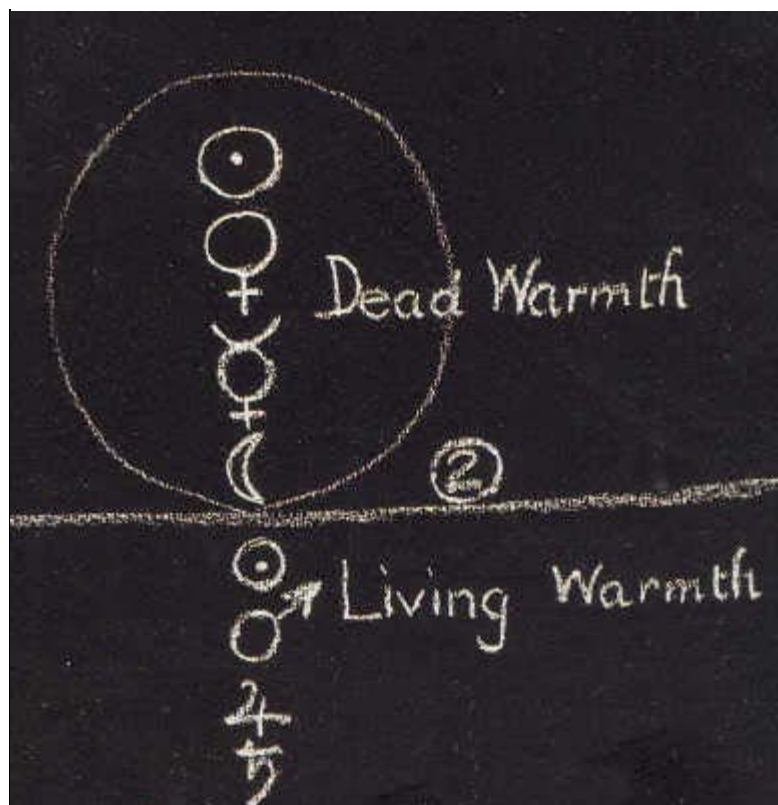 ☉
♀
Dead Warmth
☿
☾
2
☉
♂
Living Warmth
♃
♄